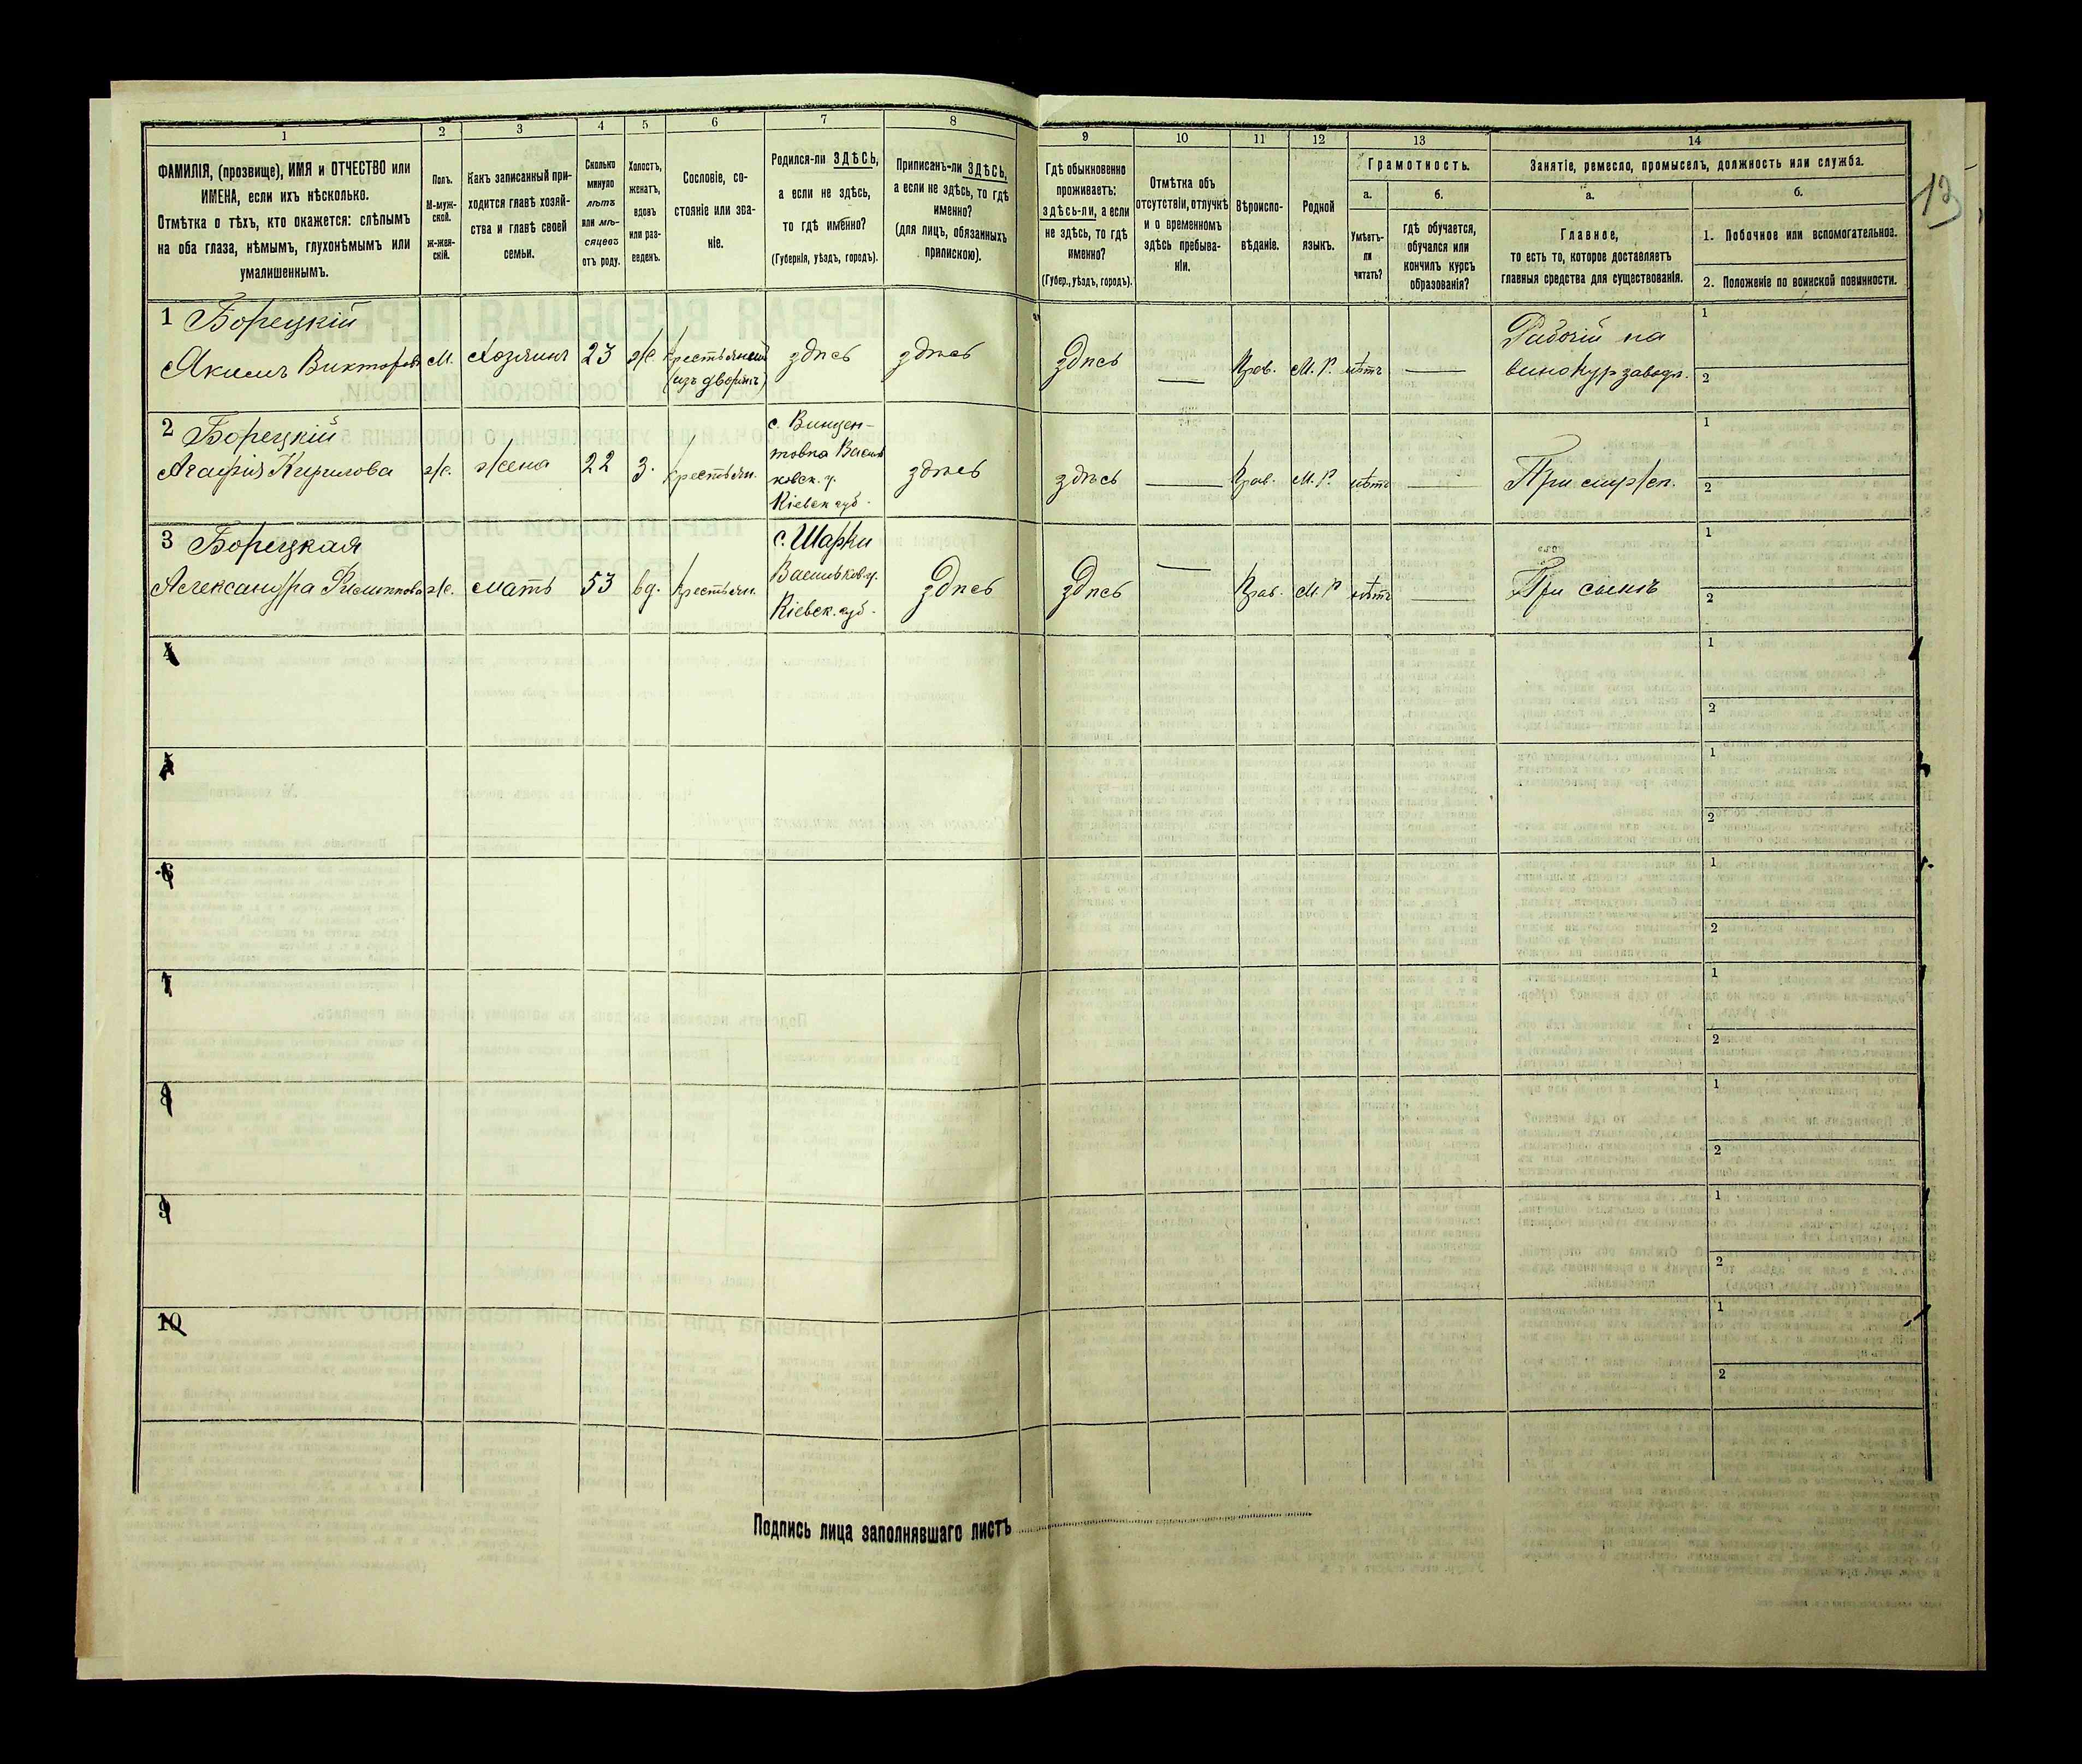 13
1
2
3
4
5
6
7
8
9
10
11
12
13
14
ФАМИЛІЯ, (прозвище), ИМЯ и ОТЧЕСТВО или
ИМЕНА, если ихъ нѣсколько.
Отмѣтка о тѣхъ, кто окажется: слѣпымъ
на оба глаза, нѣмымъ, глухонѣмымъ или
умалишеннымъ.
Полъ.
М-муж-
ской.
ж-жен-
скій.
Какъ записанный при-
ходится главѣ хозяй-
ства и главѣ своей
семьи.
Сколько
минуло
лѣтъ
или мѣ-
сяцевъ
отъ роду.
Холостъ,
женатъ,
вдовъ
или раз-
веденъ.
Сословіе, со-
стояніе или зва-
ніе.
Родился-ли ЗДѢСЬ,
а если не здѣсь,
то гдѣ именно?
(Губернія, уѣздъ, городъ).
Приписанъ-ли ЗДѢСЬ,
а если не здѣсь, то гдѣ
именно?
(для лицъ, обязанныхъ
припискою).
Гдѣ обыкновенно
проживаетъ:
здѣсь-ли, а если
не здѣсь, то гдѣ
именно?
(Губер., уѣздъ, городъ).
Отмѣтка объ
отсутствіи, отлучкѣ
и о временномъ
здѣсь пребыва-
ніи.
Вѣроиспо-
вѣданіе.
Родной
языкъ.
Грамотность.
а.
Умѣетъ-
ли
читать?
б.
гдѣ обучается,
обучался или
кончилъ курсъ
образованія?
Занятіе, ремесло, промыселъ, должность или служба.
а.
Главное,
то есть то, которое доставляетъ
главныя средства для существованія.
б.
1. Побочное или вспомогательное.
2. Положеніе по воинской повинности.
1 Борецкій
Акимъ Викторовъ
М.
Хозяинъ
23
ж.
крестьянинъ
(изъ дворянъ)
здѣсь
здѣсь
здѣсь
—
Прав.
М. Р.
нѣтъ
—
Рабочій на
винокур заводѣ.
1
2
2 Борецкій
Агафія Кирилова
ж.
жена
22
з.
крестьян.
с. Винцен-
товка Василь
ковск. у.
Кіевск губ.
здѣсь
здѣсь
—
Прав.
М. Р.
нѣтъ
—
При мужѣ.
1
2
3 Борецкая
Александра Филиппова
ж.
мать
53
вд.
крестьян.
с. Шарки
Васильков у.
Кіевск. губ.
здѣсь
здѣсь
—
Прав.
М. Р
нѣтъ
—
При сынѣ
1
2
4
1
2
5
1
2
6
1
2
7
1
2
8
1
2
9
1
2
10
1
2
Подпись лица заполнявшаго листъ